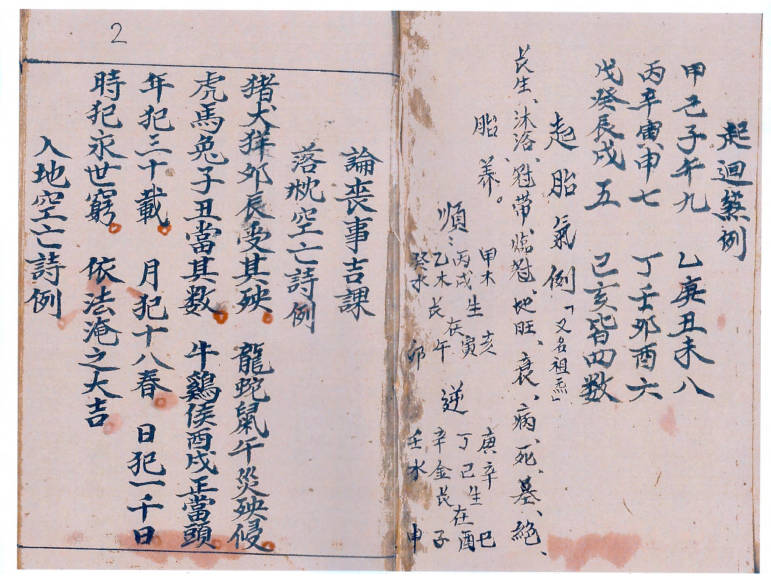 起迴煞例
甲己子午九 乙庚丑未八
丙辛寅申七 丁壬卯酉六
戊癸辰戌五 己亥皆四数
起胎氣例「又名祖炁」
長生、沐浴、冠帶、臨冠、地旺、衰、病、死、墓、絕、
胎養。
順：
甲木生亥
丙戊在寅
乙木長午
癸水卯
逆
庚辛生巳
丁己在酉
辛金長子
壬水申
2
論喪事吉課
落枕空亡詩例
猪犬羊卯辰受其殃。 龍蛇鼠午災殃侵。
虎馬兔子丑當其数。 牛鷄侯酉戌正當頭。
年犯三十載。 月犯十八春。 日犯一千日
時犯永世窮。 依法淹之大吉
入地空亡詩例